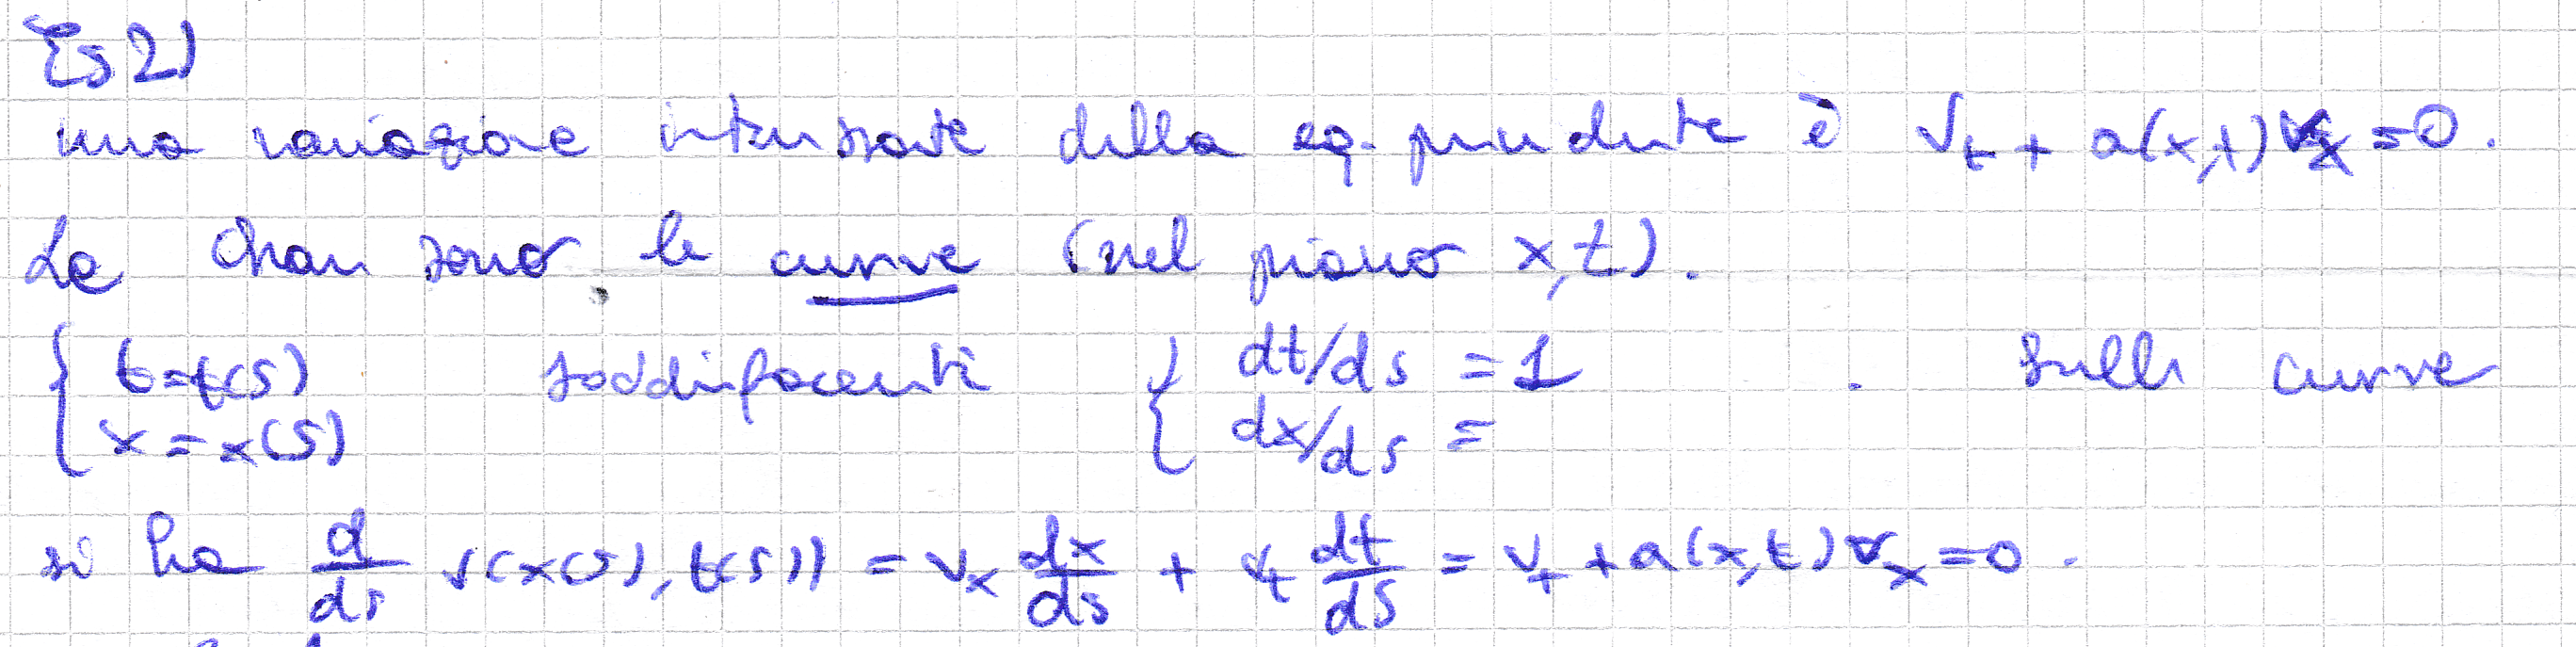 Es 2)
una variazione interessante della eq. precedente è v_t + a(x,t) v_x = 0.
Le char sono le curve (nel piano x,t).
{ t=t(s) soddisfacenti { dt/ds = 1 . Sulle curve
x = x(s) dx/ds =
si ha d/ds v(x(s), t(s)) = v_x dx/ds + v_t dt/ds = v_t + a(x,t) v_x = 0.